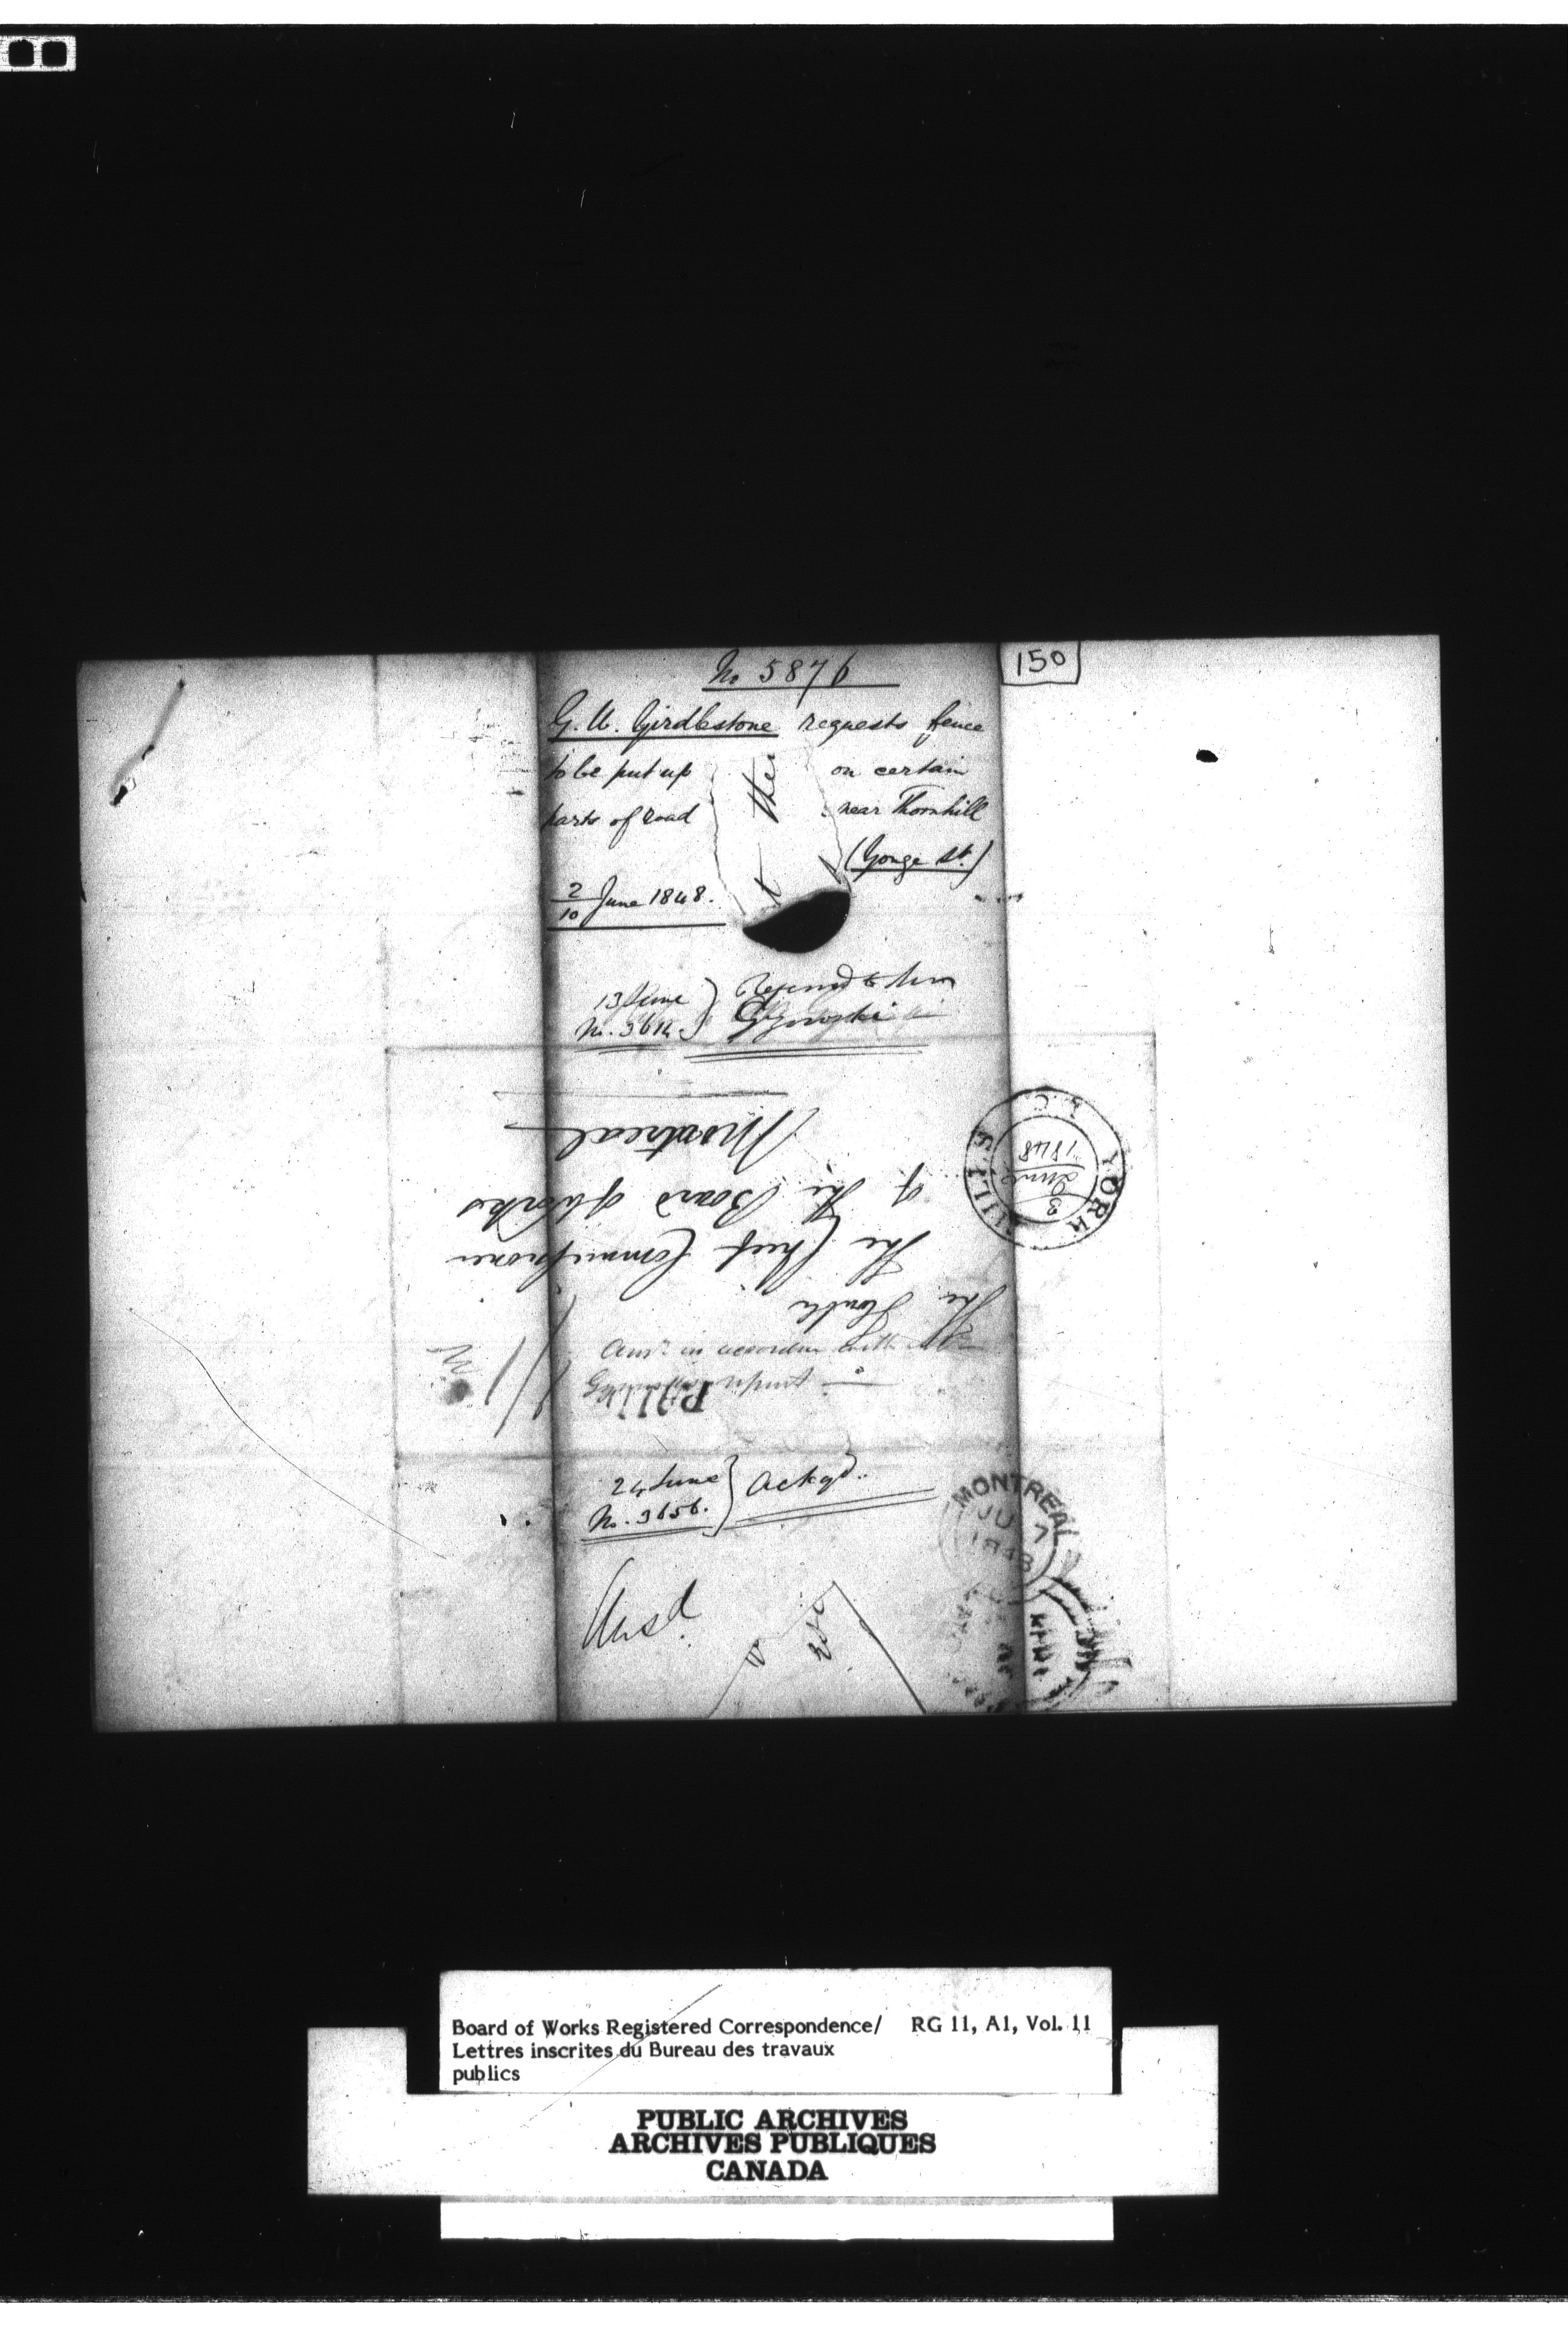 No 5876
150
G. U. Girdlestone requests fence
to be put up on certain
the
parts of road near Thornhill
(Yonge St.)
2/10 June 1848.
13 June } Referred to
No. 361
Montreal
of the Board of Works
The Chief Commissioner
The Honble
YORK MILLS
U.C.
3
June
1848
Ansd in accordance with
PAID
24 June } Ackgd..
No. 3656.
MONTREAL
JU 7
1848
Ansd.
Board of Works Registered Correspondence/ RG 11, A1, Vol. 11
Lettres inscrites du Bureau des travaux
publics
PUBLIC ARCHIVES
ARCHIVES PUBLIQUES
CANADA